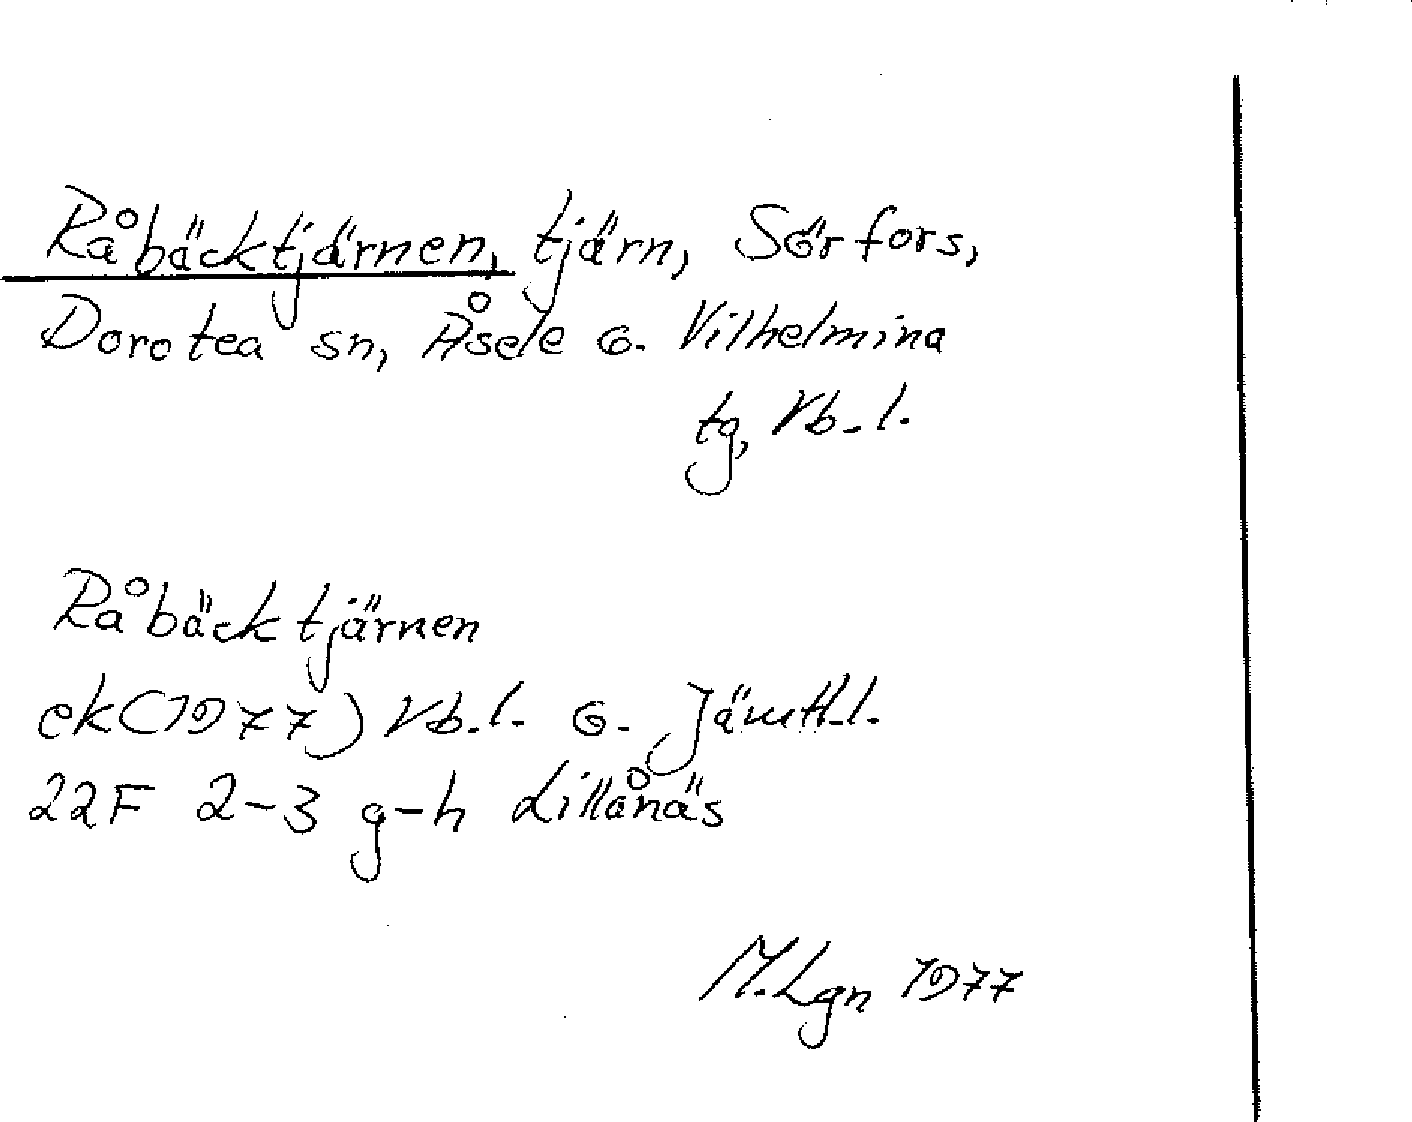 Råbäcktjärnen, tjärn, Sörfors,
Dorotea sn, Åsele o. Vilhelmina
tg, Vb. l.
Råbäcktjärnen
ek (1977) Vb. l. o. Jämtl. l.
22F 2-3 g-h Lillånäs
M. Lgn 1977